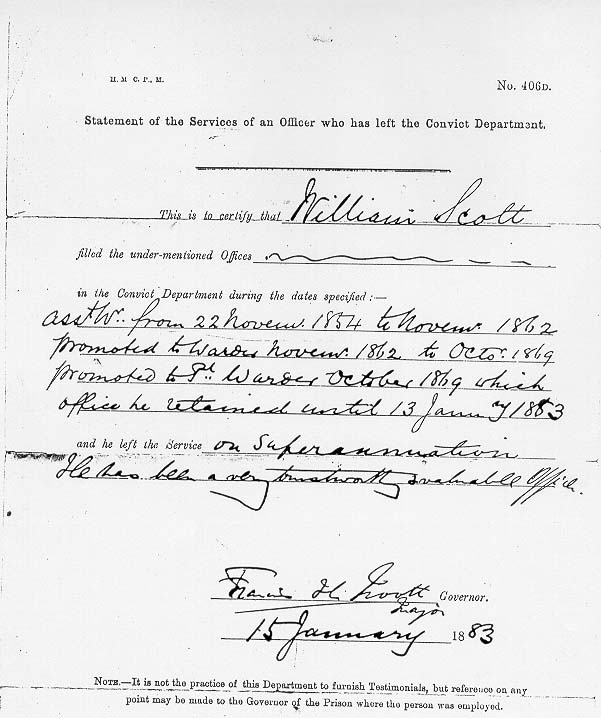 H. M C. P., M.
No. 406D.
Statement of the Services of an Officer who has left the Convict Department.
This is to certify that William Scott
filled the under-mentioned Offices
in the Convict Department during the dates specified:—
asst Wr. from 22 Novemr. 1854 to Novemr. 1862
promoted to Warder Novemr. 1862 to Octr. 1869
promoted to Pl. Warder October 1869 which
office he retained until 13 Jany 1883
and he left the Service on Superannuation
He has been a very trustworthy & valuable Officer.
Francis H. Governor.
Major
15 January 1883
NOTE.—It is not the practice of this Department to furnish Testimonials, but reference on any
point may be made to the Governor of the Prison where the person was employed.